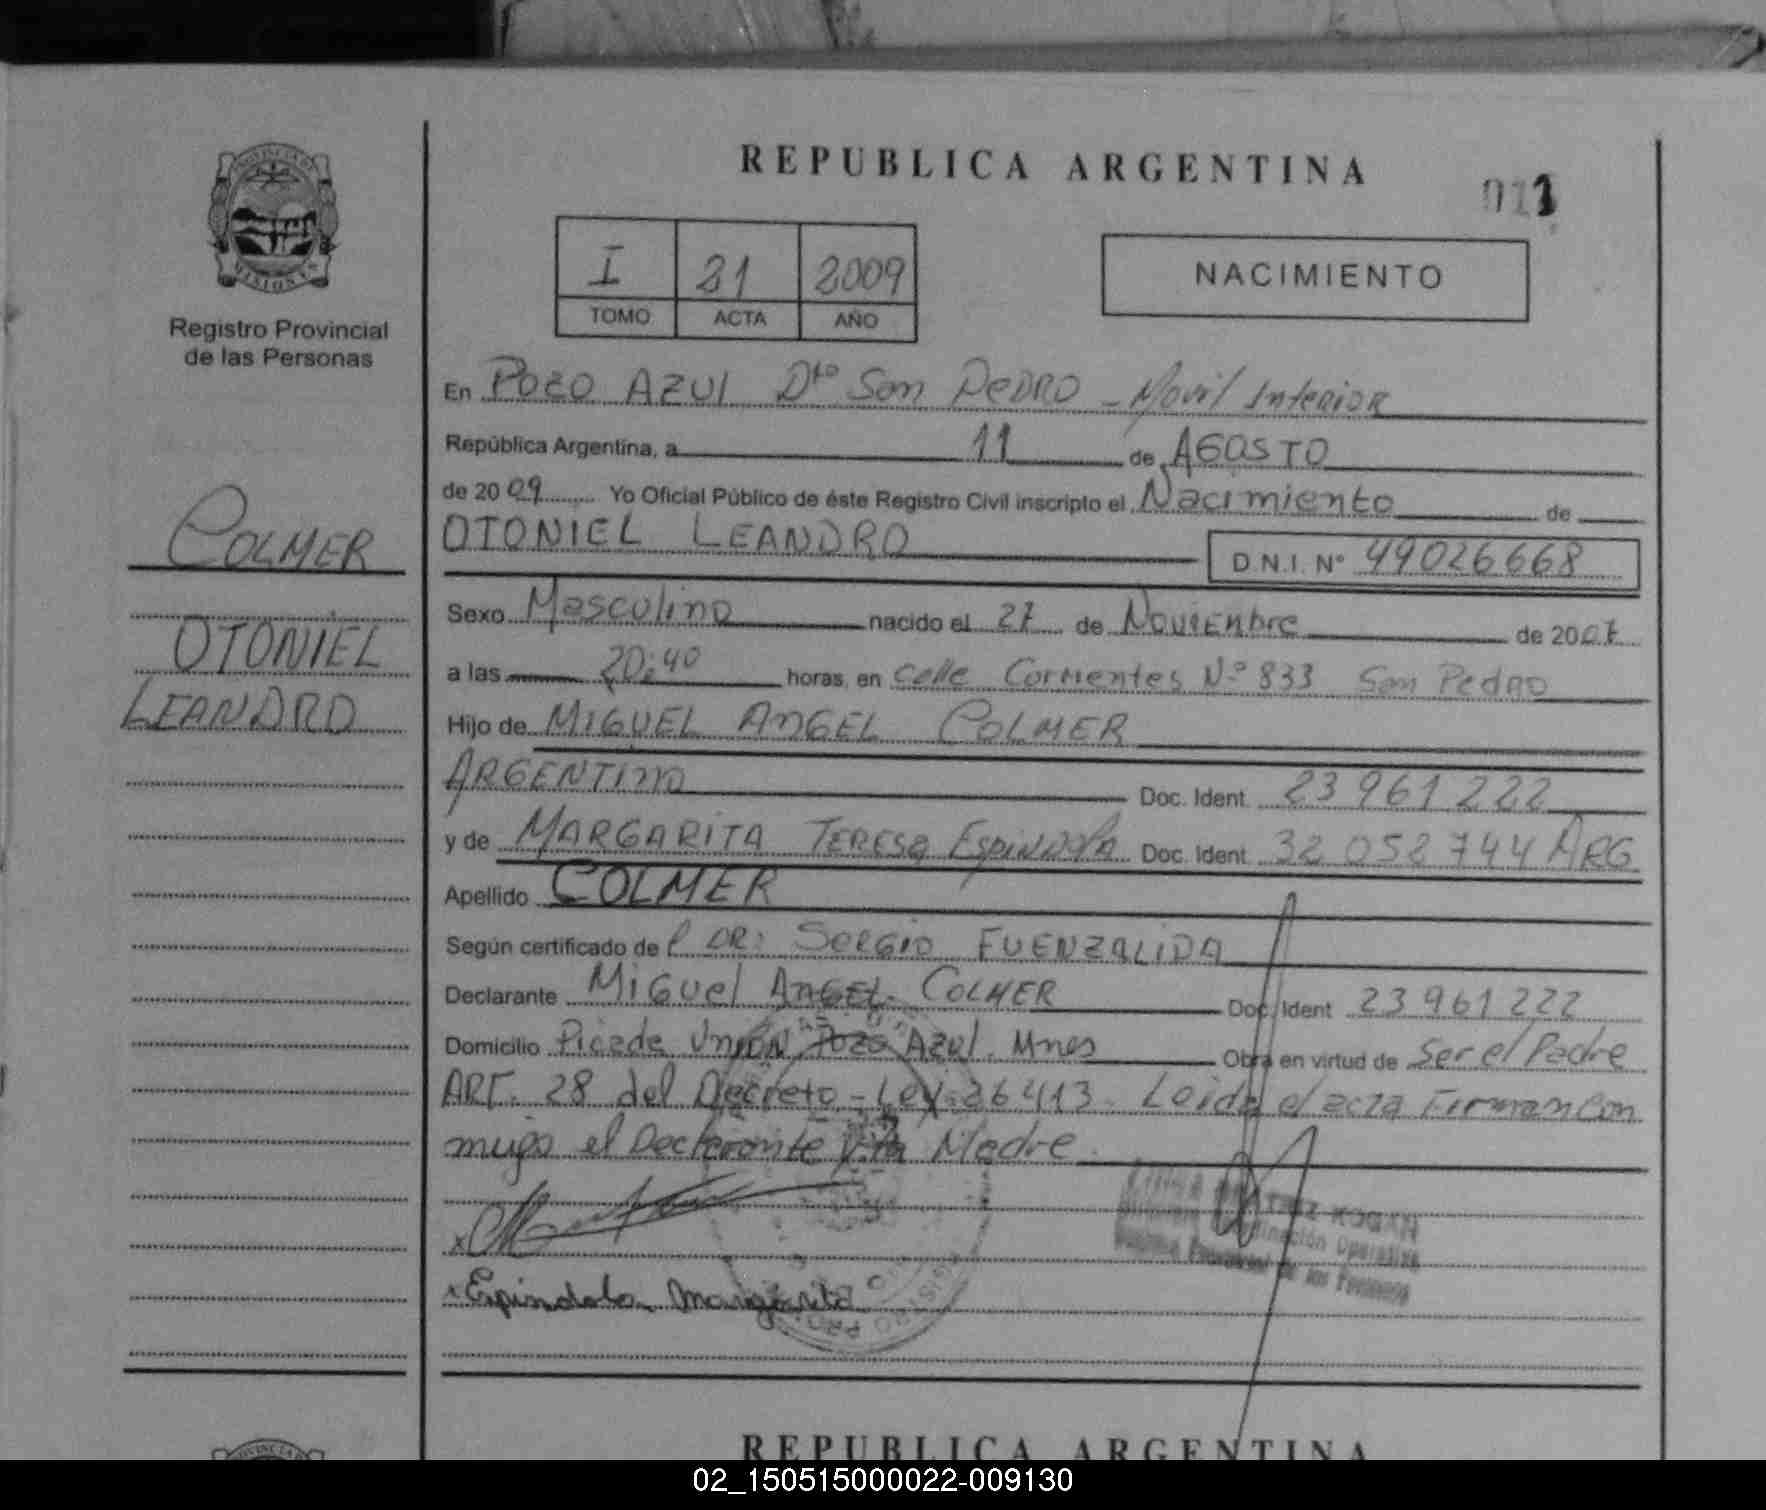 REPUBLICA ARGENTINA
011
PROVINCIA DE
MISIONES
Registro Provincial
de las Personas
I 21 2009
TOMO ACTA AÑO
NACIMIENTO
En POZO AZUL Dto San PEDRO - Movil Interior
República Argentina, a 11 de AGOSTO
de 2009 Yo Oficial Público de éste Registro Civil inscripto el Nacimiento de
OTONIEL LEANDRO D.N.I. N° 49026668
COLMER
OTONIEL
LEANDRO
Sexo Masculino nacido el 27 de NOVIEMbre de 2007
a las 20:40 horas, en calle Corrientes N° 833 San Pedro
Hijo de MIGUEL ANGEL COLMER
ARGENTINO Doc. Ident. 23 961 222
y de MARGARITA TERESA ESPINDOLA Doc. Ident. 32 052 744 ARG
Apellido COLMER
Según certificado de l DR: SERGIO FUENZALIDA
Declarante MIGUel ANGEL COLMER Doc. Ident. 23 961 222
Domicilio Picada UNION POZO AZUL. Mnes Obra en virtud de Ser el Padre
ART. 28 del Decreto - Ley 26413. Leida el acta Firman Con
migo el Declarante y la Madre.
x
x Espindola Margarita
KOGAN
Coordinación Operativa
Registro Provincial de las Personas
REPUBLICA ARGENTINA
02_150515000022-009130